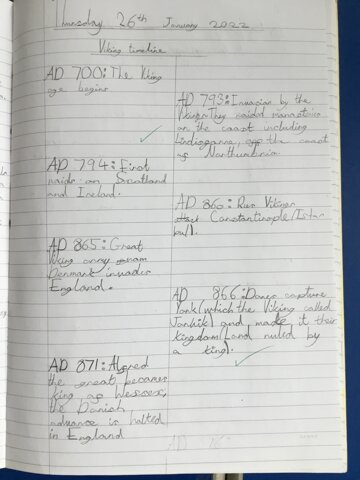 Thursday 26th January 2022
Viking timeline
AD 700: The Viking
age begins
AD 793: Invasion by the
Vikings. They raided monasteries
on the coast including
Lindisgarne, off the coast
of Northumbria
AD 794: First
raids on Scotland
and Ireland.
AD 860: Rus Vikings
attack Constantinople/Istan
bull.
AD 865: Great
Viking army from
Denmark invades
England.
AD 866: Danes capture
York (which the Viking called
Jorvik) and made it their
kingdom (land ruled by
a king).
AD 871: Alfred
the great becomes
king of Wessex,
the Danish
advance is halted
in England
AD